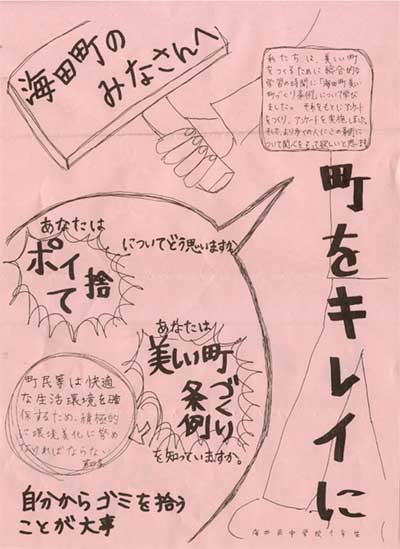 海田町の
みなさんへ
私たちは、美しい町
をつくるために総合的な
学習の時間に「海田町美しい
町づくり条例」について学び
ました。それをもとにアンケート
をつくり、アンケートを実施しました。
より多くの人にこの条例に
ついて関心をもって欲しいと思います
町をキレイに
あなたは
ポイ捨て
についてどう思いますか。
あなたは
美しい町
づくり
条例
を知っていますか。
町民等は快適
な生活環境を確
保するため、積極的
に環境美化に努め
なければならない
自分からゴミを拾う
ことが大事